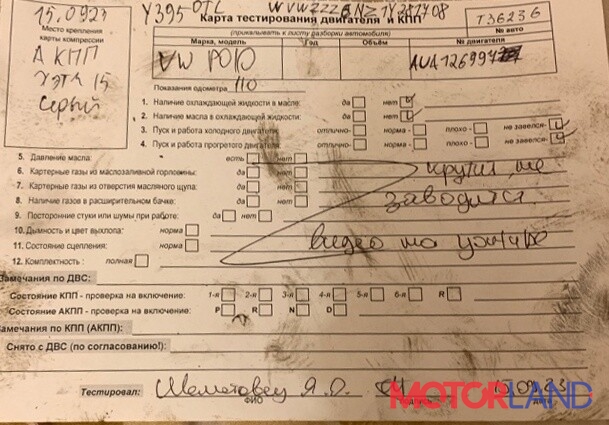 15.0923 У395 OTL
Карта тестирования двигателя и КПП
(прикалывать к листу разборки автомобиля)
T36236
№ авто
Место крепления
карты компрессии
АКПП
15
Серый
Марка, модель Год Объём № двигателя
VW POLO
Показания одометра 110
1. Наличие охлаждающей жидкости в масле: да нет
2. Наличие масла в охлаждающей жидкости: да нет
3. Пуск и работа холодного двигателя: отлично- норма - плохо - не завелся-
4. Пуск и работа прогретого двигателя: отлично- норма - плохо - не завелся-
5. Давление масла: есть нет
6. Картерные газы из маслозаливной горловины: да нет
7. Картерные газы из отверстия масляного щупа: да нет
8. Наличие газов в расширительном бачке: да нет
9. Посторонние стуки или шумы при работе: да нет
10. Дымность и цвет выхлопа: норма
11. Состояние сцепления: норма
12. Комплектность : полная
крутил, не
заводится
видео на ютубе
Замечания по ДВС:
Состояние КПП - проверка на включение: 1-я 2-я 3-я 4-я 5-я 6-я R
Состояние АКПП - проверка на включение: P R N D
Замечания по КПП (АКПП):
Снято с ДВС (по согласованию!):
Тестировал: 15.09.23
ФИО подпись дата
MOTORLAND